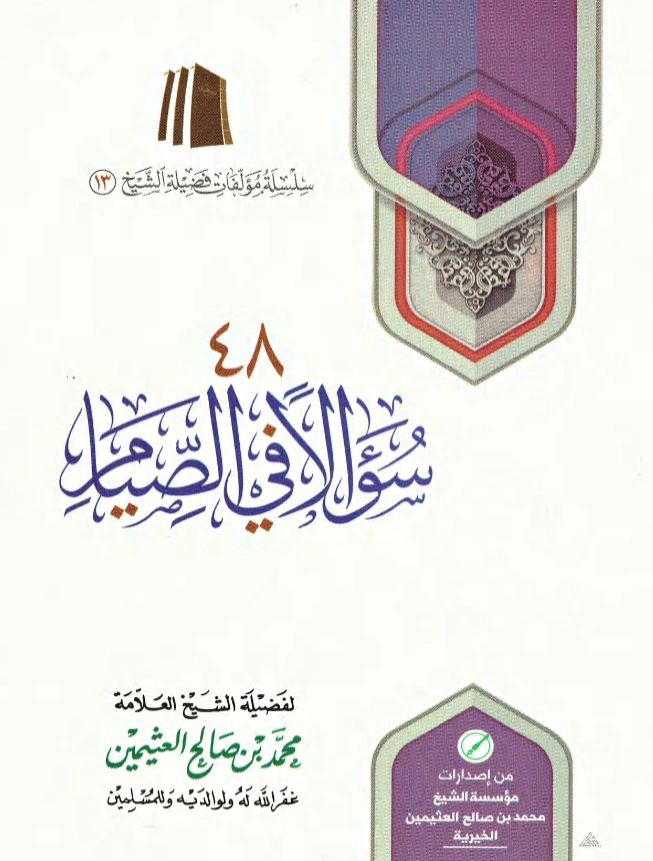 سِلْسِلَة مُؤَلَّفَات فَضِيلَة الشَّيْخ ١٣
٤٨
سُؤَالًا فِي الصِّيَامِ
لفَضِيْلَة الشَّيْخ العَلَّامَة
محمَّد بْن صَالِح العثيمين
غَفَر اللَّه لَهُ ولوالدَيْه وَللمُسْلِمِين
من إصدارات
مؤسسة الشيخ
محمد بن صالح العثيمين
الخيرية